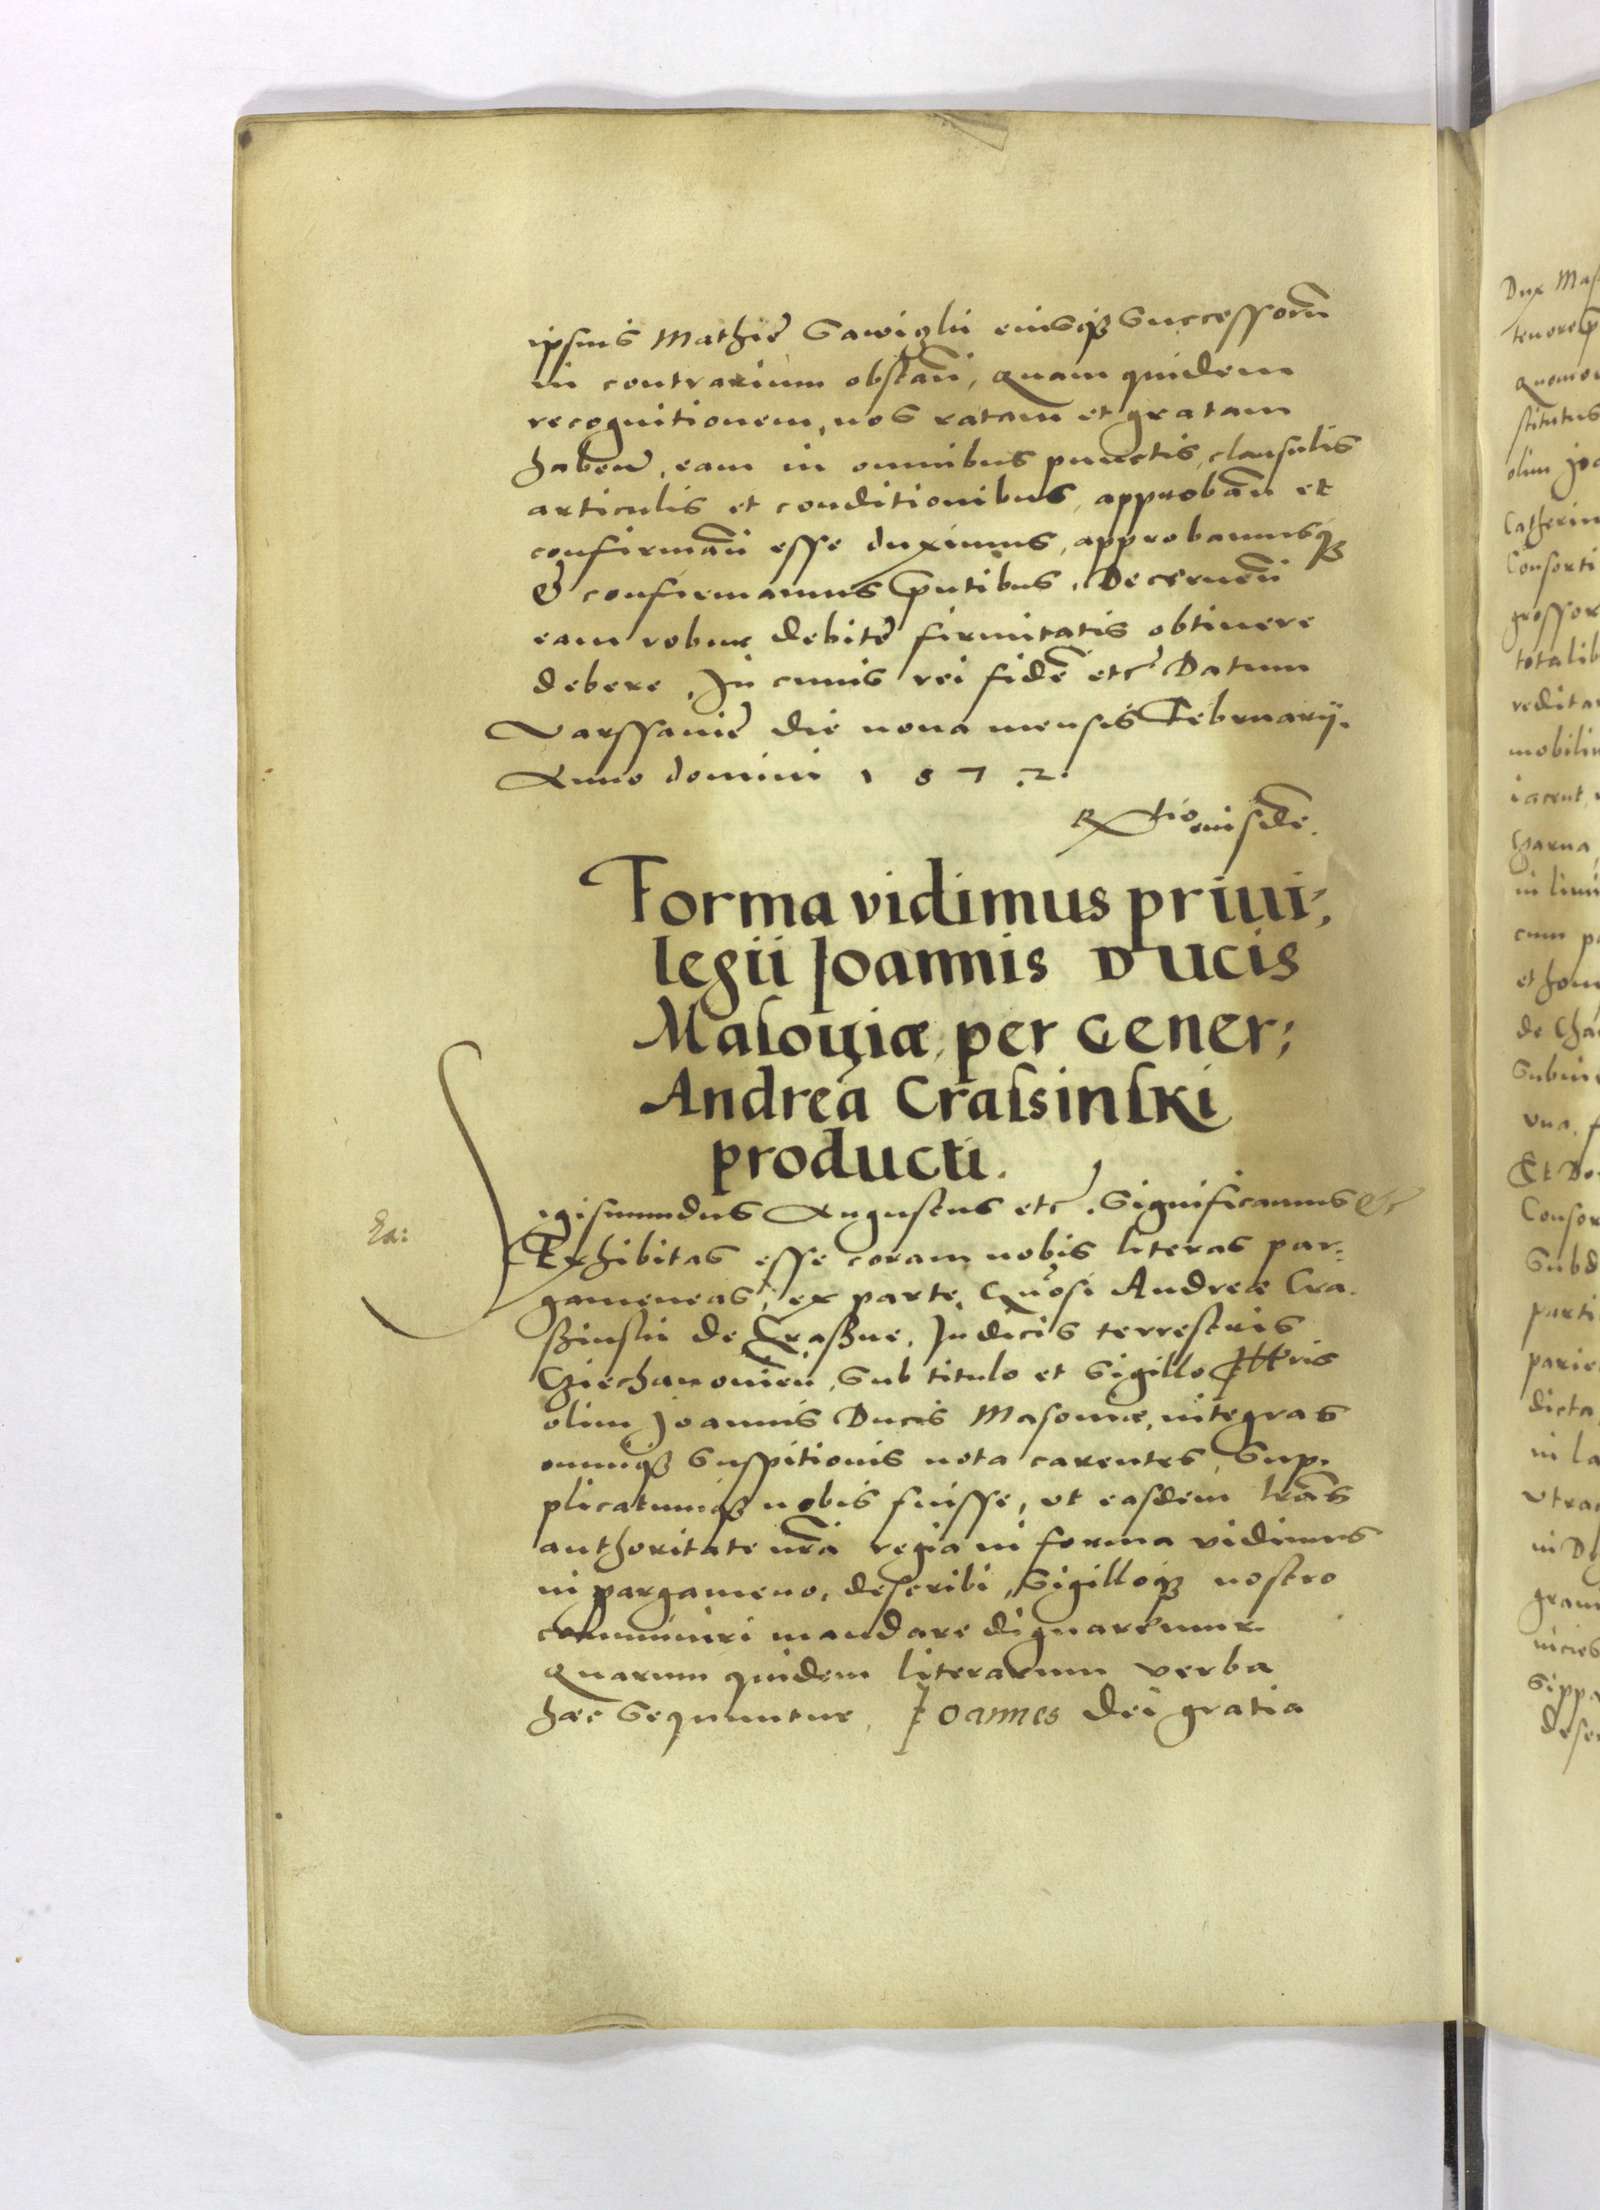 ipsius Mathie Gawiglii eiusq Successorū
in contrarium obstan̄, Quam quidem
recognitionem, nos ratam et gratam
haben̄, eam in omnibus punctis, clausulis
articulis et conditionibus, approban̄ et
confirman̄ esse duximus, approbamusq
& confirmamus pn̄tibus. Decernen̄
eam robur debite firmitatis obtinere
debere. In cuius rei fidē etc Datum
Varssavie die nona mensis Februarij.
Anno domini 1 5 7 2.
Rtio eiusdē.
Forma vidimus priui;
legii Joannis Ducis
Masouiæ, per Gener;
Andreā Crassinski
producti.
Sigismundus Augustus etc. Significamus &c
Ea:
Exhibitas esse coram nobis literas par⸗
gameneas, ex parte, Gn̄osi Andreæ Cra.
ssinskii de Craszne, Judicis terrestris
Cziechanovien̄, Sub titulo et Sigillo Illris
olim Joannis Ducis Masoviæ, integras
omniq suspitionis nota carentes, Sup.
plicatumq nobis fuisse, ut easdem lr̄as
authoritate nr̄a regia in forma vidimus
in pargameno, describi, Sigilloq nostro
communiri mandare dignaremur.
Quarum quidem literarum verba
hæc sequuntur, Joannes Dei gratia